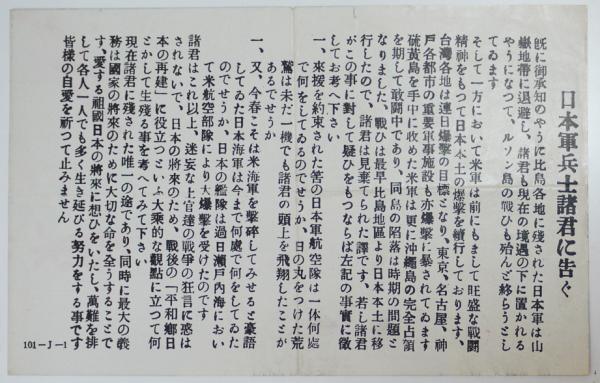 日本軍兵士諸君に告ぐ
既に御承知のやうに比島各地に残された日本軍は山
嶽地帶に退避し、諸君も現在の境遇の下に置かれる
やうになつて、ルソン島の戰ひも殆んど終らうとし
てゐます
そして一方において米軍は前にもまして旺盛な戰鬪
精神をもつて日本本土の爆撃を續行しております、
台灣各地は連日爆撃の目標となり、東京、名古屋、神
戸各都市の重要軍事施設も亦爆撃に暴されてゐます
硫黄島を手中に收めた米軍は更に沖繩島の完全占領
を期して敢鬪中であり、同島の陷落は時期の問題と
なりました、戰ひは最早比島地區より日本本土に移
行したので、諸君は見棄てられた譯です、若し諸君
がこの事に對して疑ひをもつならば左記の事實に徵
してお考へ下さい
一、來援を約束された筈の日本軍航空隊は一体何處
で何をしてゐるのでせうか、日の丸をつけた荒
鷲は未だ一機でも諸君の頭上を飛翔したことが
あるでせうか
一、又、今春こそは米海軍を撃碎してみせると豪語
してゐた日本海軍は今まで何處で何をしてゐた
のでせうか、日本の艦隊は過日瀬戸内海におい
て米航空部隊により大爆撃を受けたのです
諸君はこれ以上、迷妄な上官達の戰爭の狂言に惑は
されないで、日本の將來のため、戰後の「平和鄉日
本の再建」に役立つといふ大乘的な觀點に立つて何
とかして生き殘る事を考へてみて下さい
現在諸君に殘された唯一の途であり、同時に最大の義
務は國家の將來のために大切な命を全うすることで
す、愛する祖國日本の將來に想ひをいたし、萬難を排
して各人一人でも多く生き延びる努力をする事です
皆樣の自愛を祈つて止みません
101-J-1